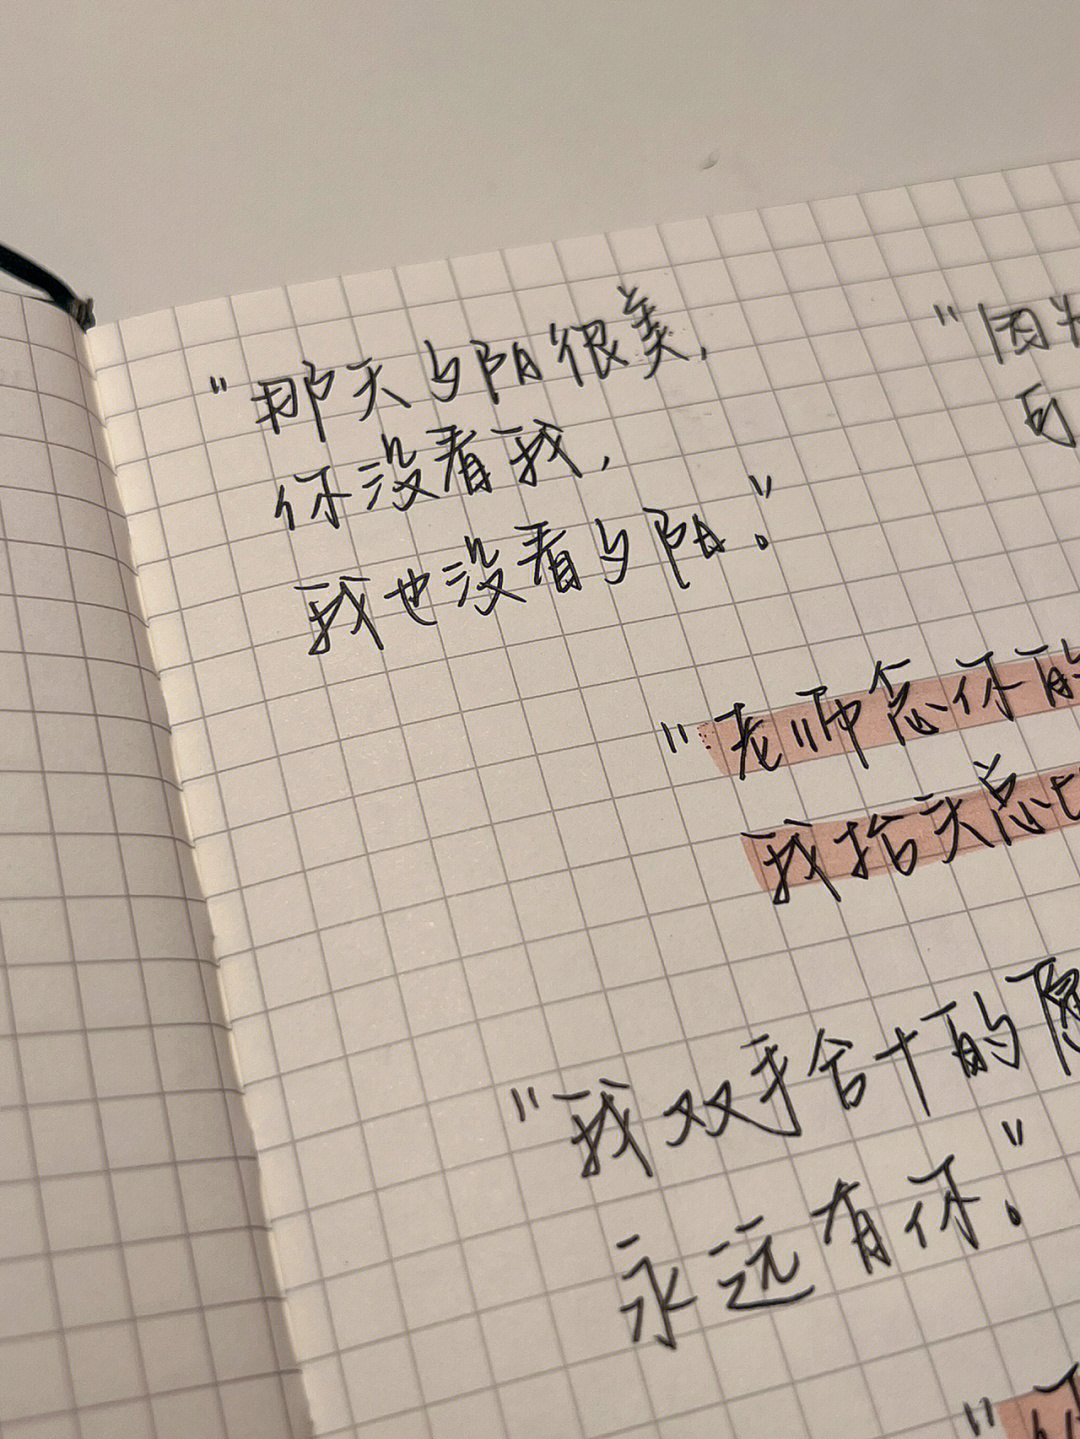 "那天夕阳很美,
你没看我,
我也没看夕阳。"
"因为
"老师念你的
我抬头总比
"我双手合十的愿
永远有你。"
"你